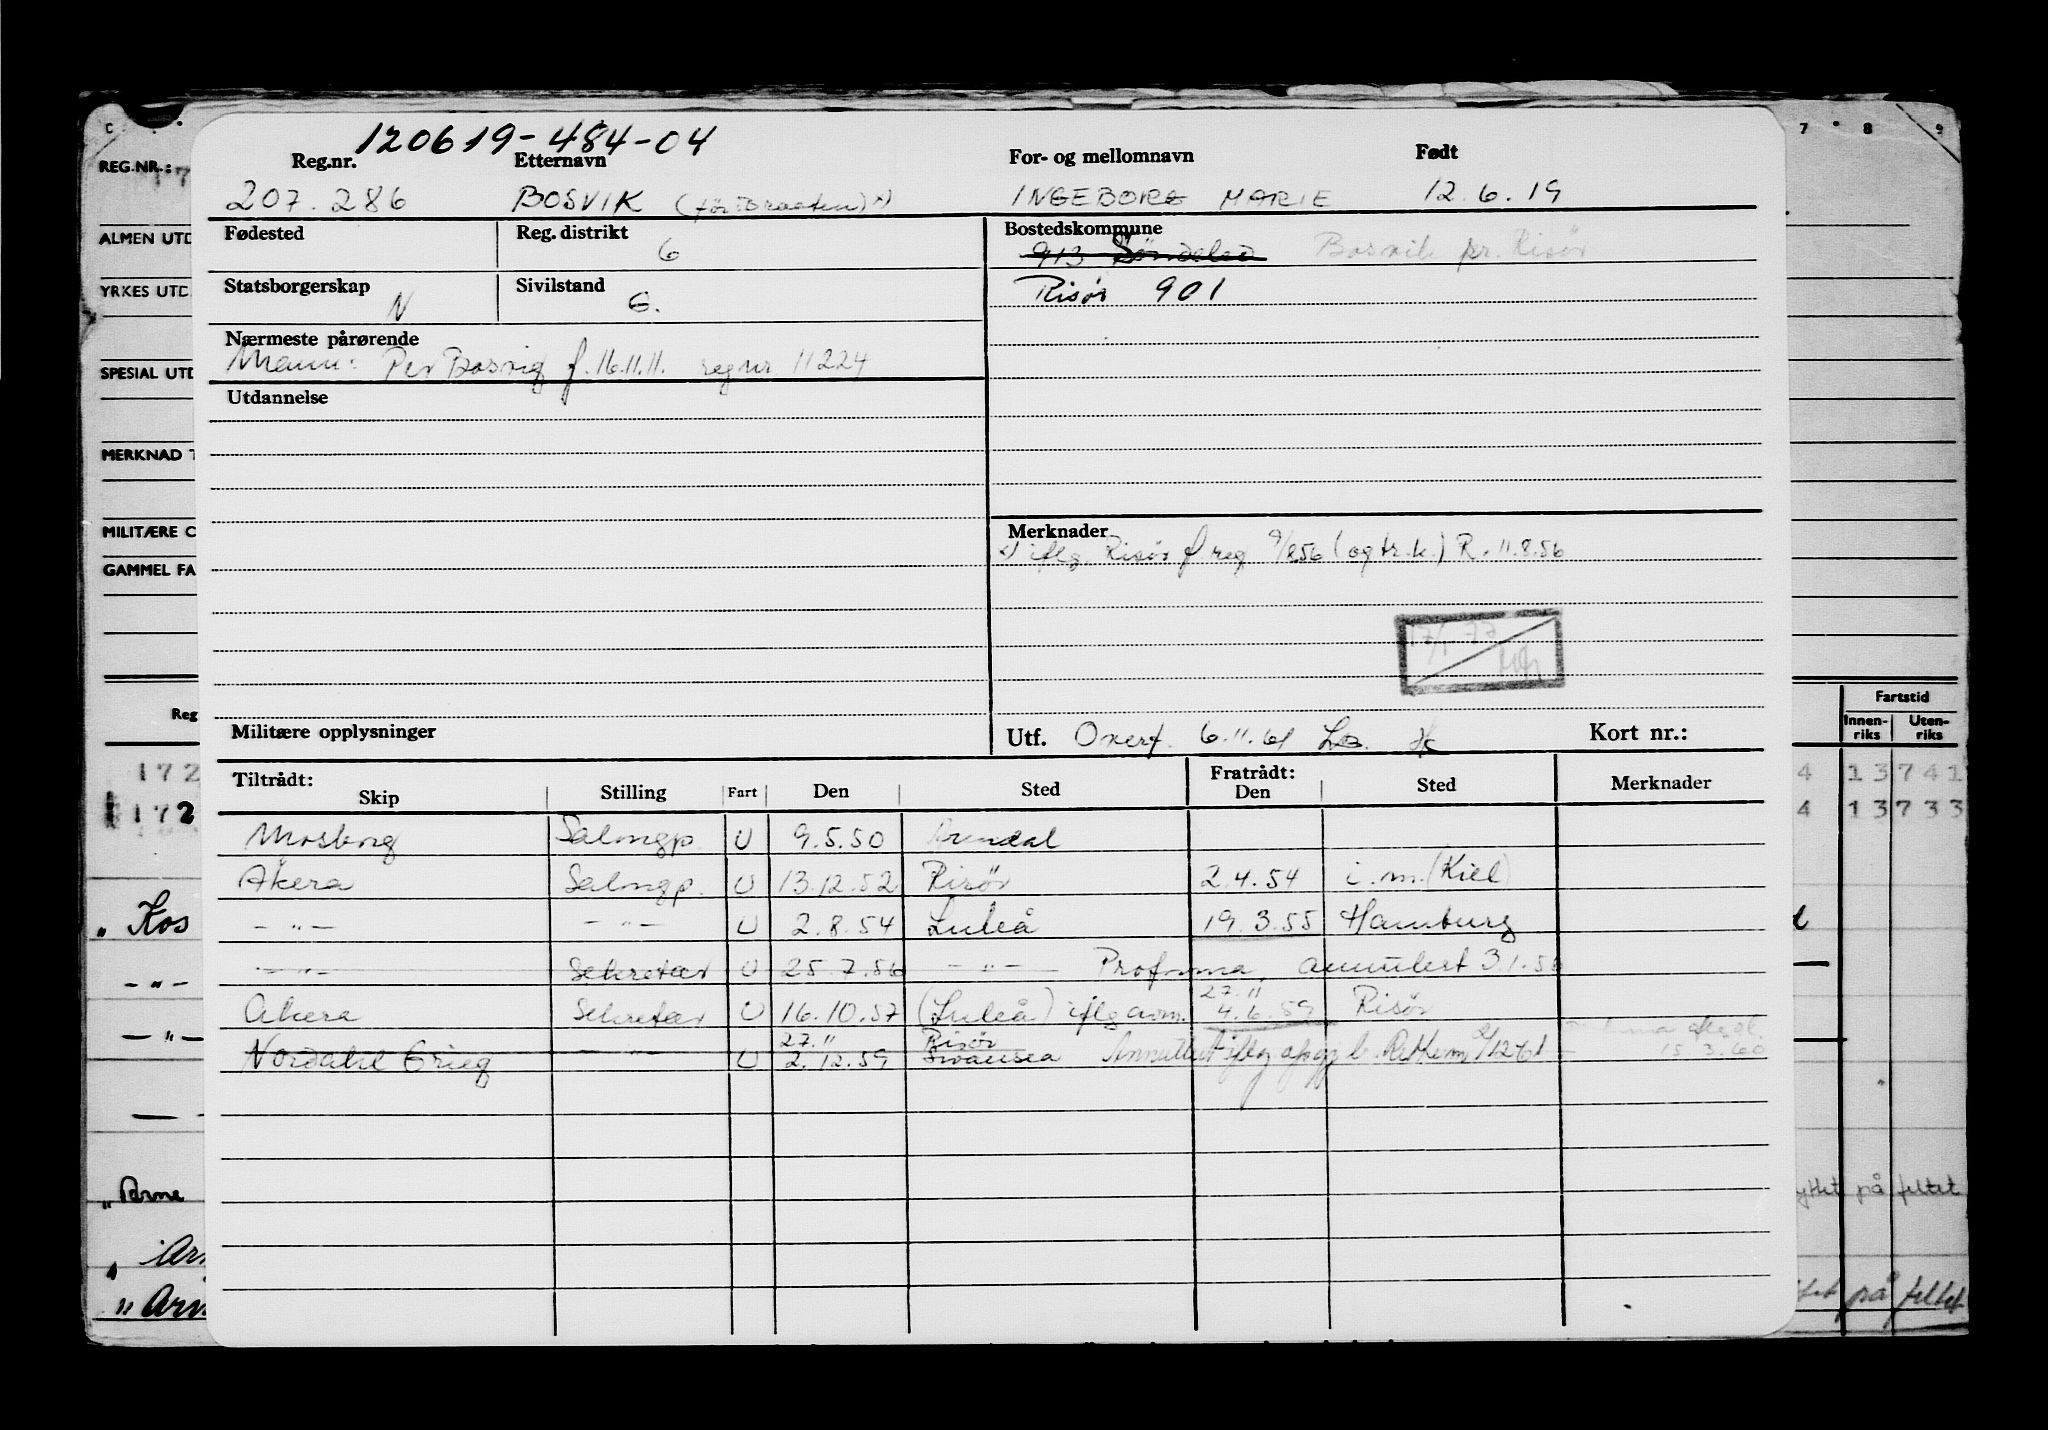 120619-484-04
Reg.nr. Etternavn For- og mellomnavn Født
207.286 BOSVIK (før Braaten) x) INGEBORG MARIE 12.6.19
Fødested Reg. distrikt 6 Bostedskommune
913 Søndeled Bosvik pr. Risør
Statsborgerskap N Sivilstand G. Risør 901
Nærmeste pårørende
Mann: Per Bosvig f. 16.11.11. regnr 11224
Utdannelse
Merknader
x) iflg. Risør freg 9/8 56 (og tr.k.) R. 11.8.56
17/1 77
Militære opplysninger Utf. Overf. 6.11.61 Kort nr.:
Tiltrådt: Fratrådt:
Skip Stilling Fart Den Sted Den Sted Merknader
Mosborg Salongp. U 9.5.50 Arendal
Akera Salongp. U 13.12.52 Risør 2.4.54 i.m. (Kiel)
— " — — " — U 2.8.54 Luleå 19.3.55 Hamburg
— " — Sekretær U 25.7.56 — " — Proforma, annullert 3.1.56
27.11
Akera Sekretær U 16.10.57 (Luleå) iflg avm. 4.6.59 Risør
27.11 Risør
Nordahl Grieg — " — U 2.12.59 Swansea Annullert iflg 2/12 61
15.3.60
C 7 8 9
REG.NR.: 17
ALMEN UTD
YRKES UTD
SPESIAL UTD
MERKNAD T
MILITÆRE O
GAMMEL FA
Reg
Fartstid
Innen-riks Uten-riks
172 4 13 741
172 4 13 733
" Kos
— " —
— " —
" Arne yttet på feltet
" Arn
" Arn tet på feltet